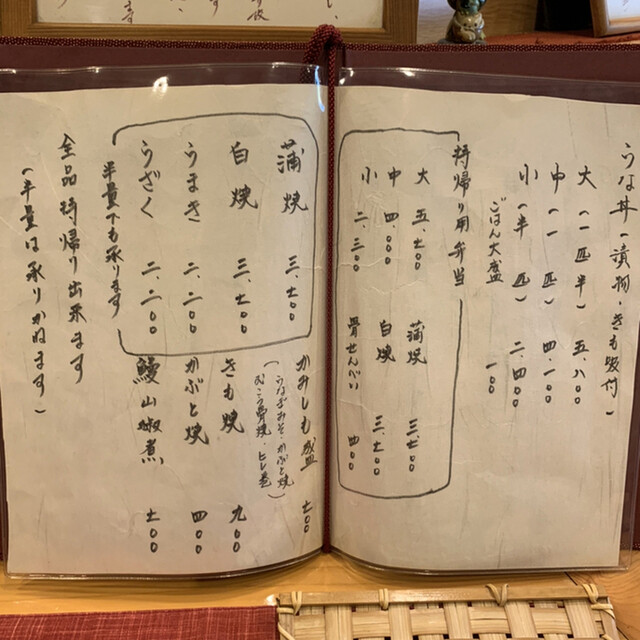 うな丼(漬物・きも吸付)
大(一匹半)五、八〇〇
中(一匹)四、一〇〇
小(半匹)二、四〇〇
ごはん大盛 一〇〇
持帰り用弁当
大 五、七〇〇
中 四、〇〇〇
小 二、三〇〇
蒲焼 三、七〇〇
白焼 三、七〇〇
骨せんべい 四〇〇
蒲焼 三、七〇〇
白焼 三、七〇〇
うまき 二、二〇〇
うざく 二、二〇〇
半量でも承ります
かみしも盛 七〇〇
きも焼 九〇〇
かぶと焼 四〇〇
鰻山椒煮 七〇〇
全品持帰り出来ます
(半量は承りかねます)